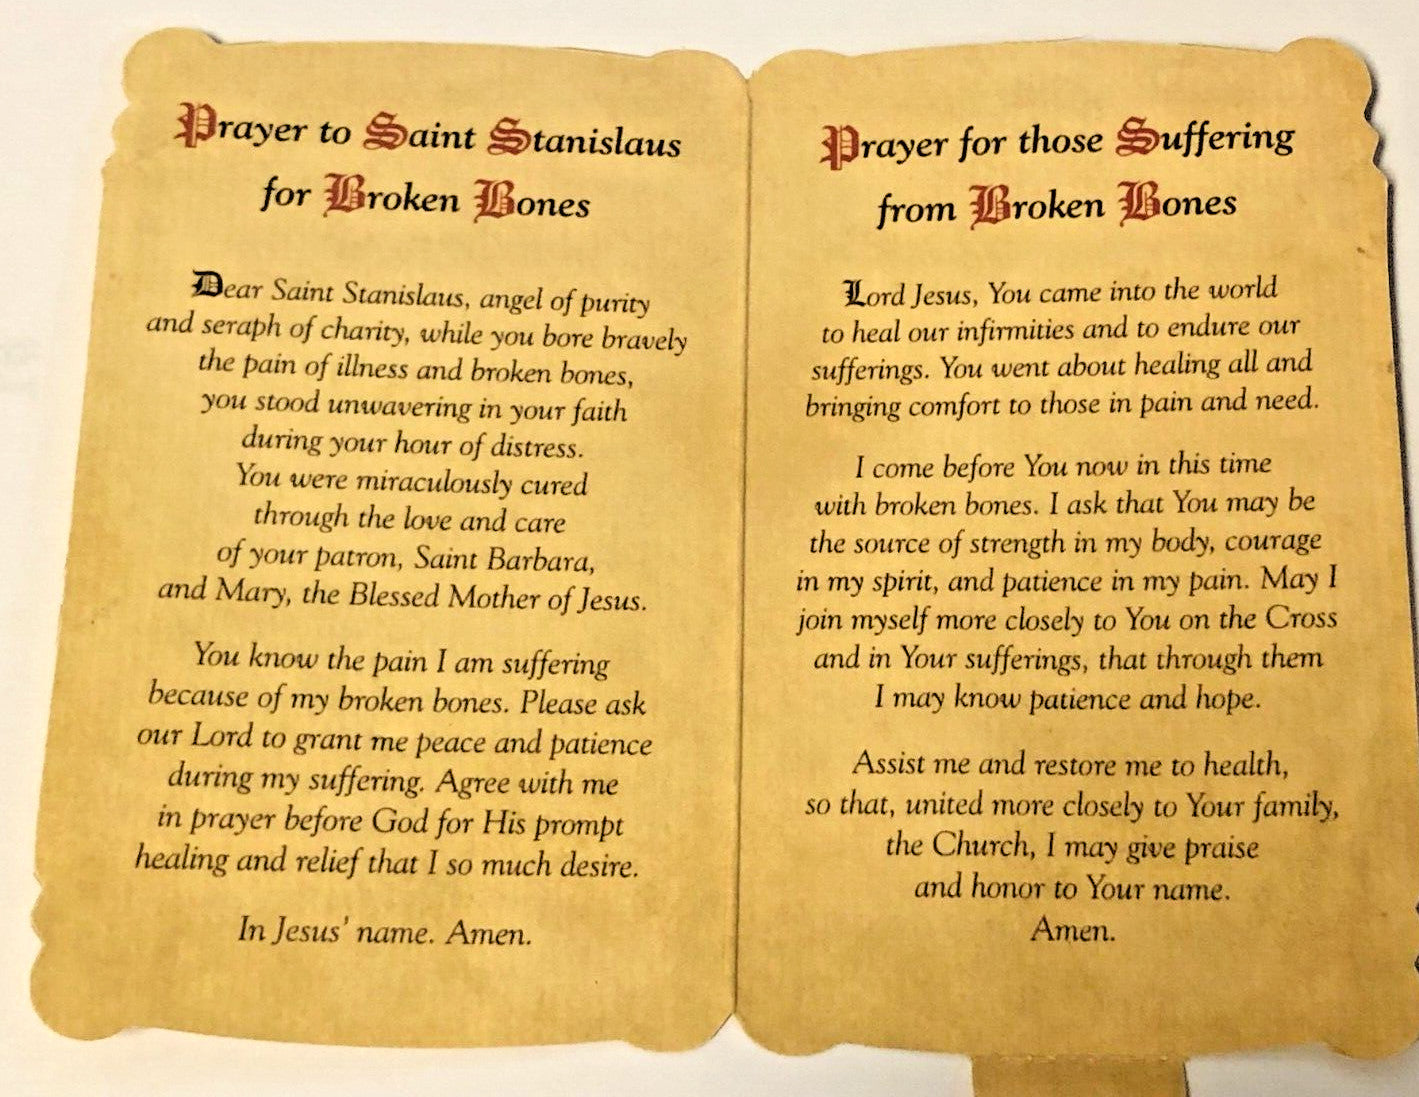 Prayer to Saint Stanislaus
for Broken Bones
Dear Saint Stanislaus, angel of purity
and seraph of charity, while you bore bravely
the pain of illness and broken bones,
you stood unwavering in your faith
during your hour of distress.
You were miraculously cured
through the love and care
of your patron, Saint Barbara,
and Mary, the Blessed Mother of Jesus.
You know the pain I am suffering
because of my broken bones. Please ask
our Lord to grant me peace and patience
during my suffering. Agree with me
in prayer before God for His prompt
healing and relief that I so much desire.
In Jesus' name. Amen.
Prayer for those Suffering
from Broken Bones
Lord Jesus, You came into the world
to heal our infirmities and to endure our
sufferings. You went about healing all and
bringing comfort to those in pain and need.
I come before You now in this time
with broken bones. I ask that You may be
the source of strength in my body, courage
in my spirit, and patience in my pain. May I
join myself more closely to You on the Cross
and in Your sufferings, that through them
I may know patience and hope.
Assist me and restore me to health,
so that, united more closely to Your family,
the Church, I may give praise
and honor to Your name.
Amen.